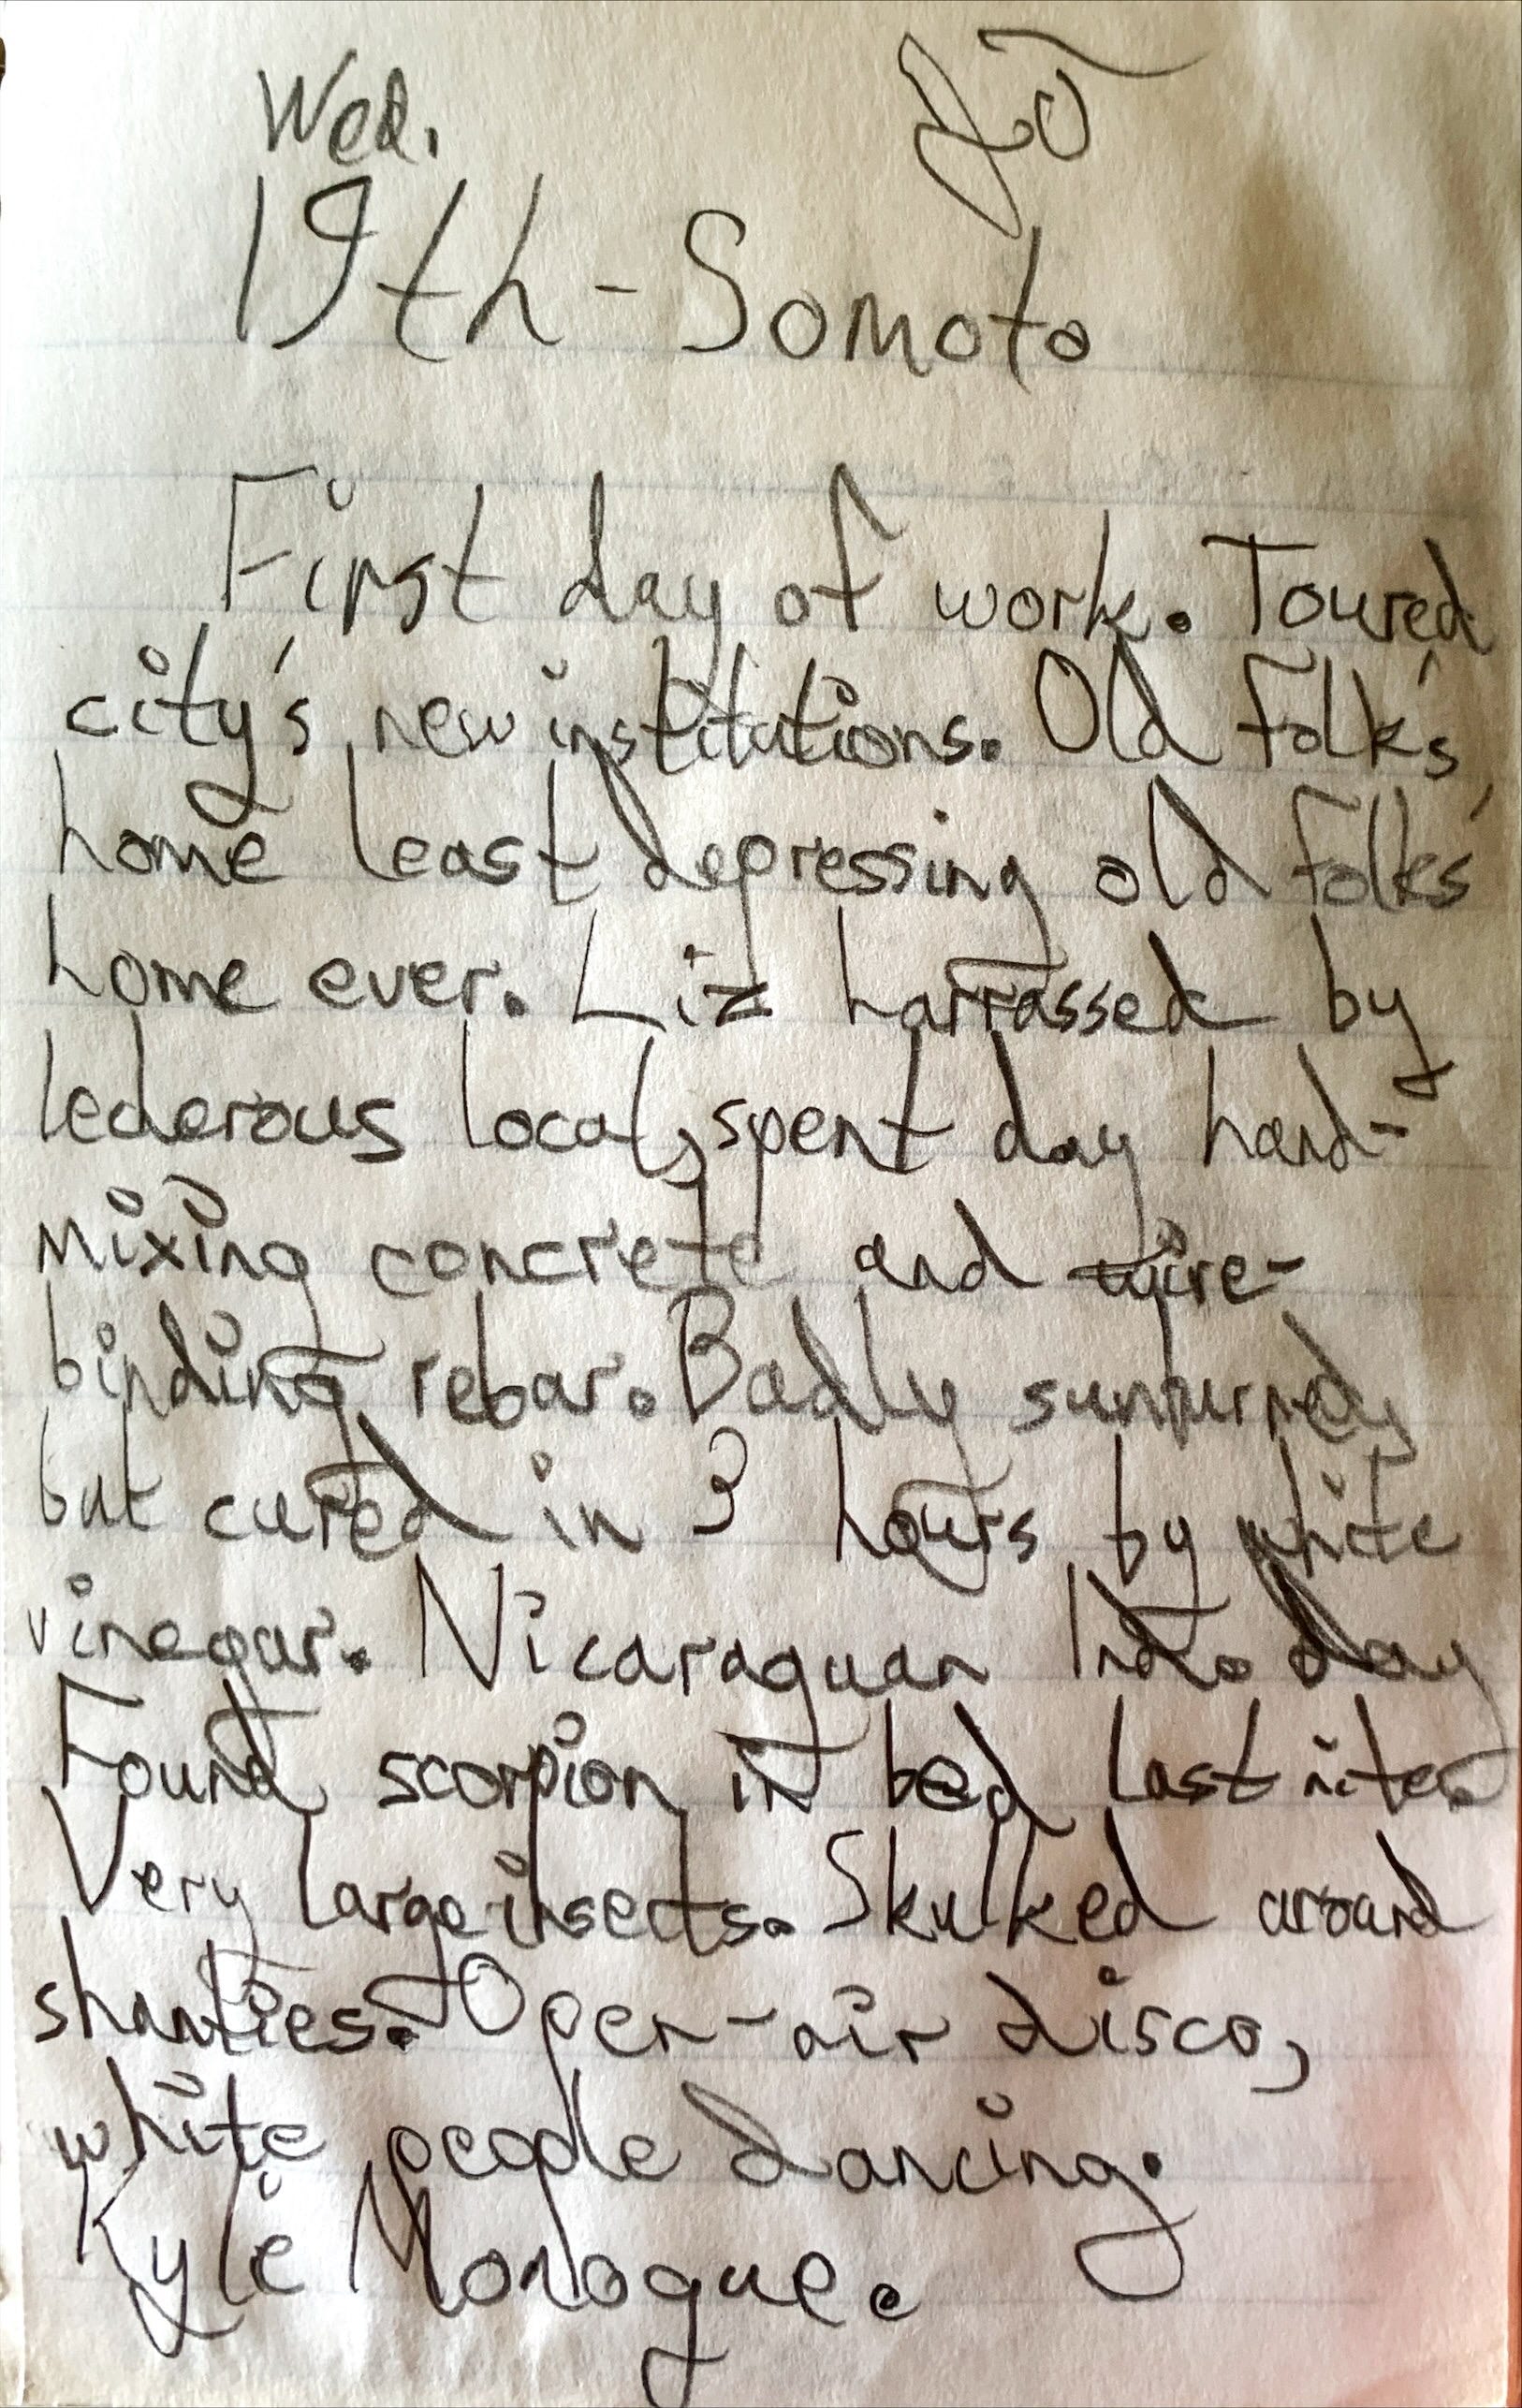 Wed.
19th - Somoto
First day of work. Toured
city's new institutions. Old folk's
home least depressing old folks'
home ever. Liz harrassed by
lecherous local, spent day hand-
mixing concrete and wire-
binding rebar. Badly sunburned,
but cured in 3 hours by white
vinegar. Nicaraguan Ind. day
Found scorpion in bed last nite.
Very large insects. Skulked around
shanties. Open-air disco,
white people dancing.
Kyle Monogue.